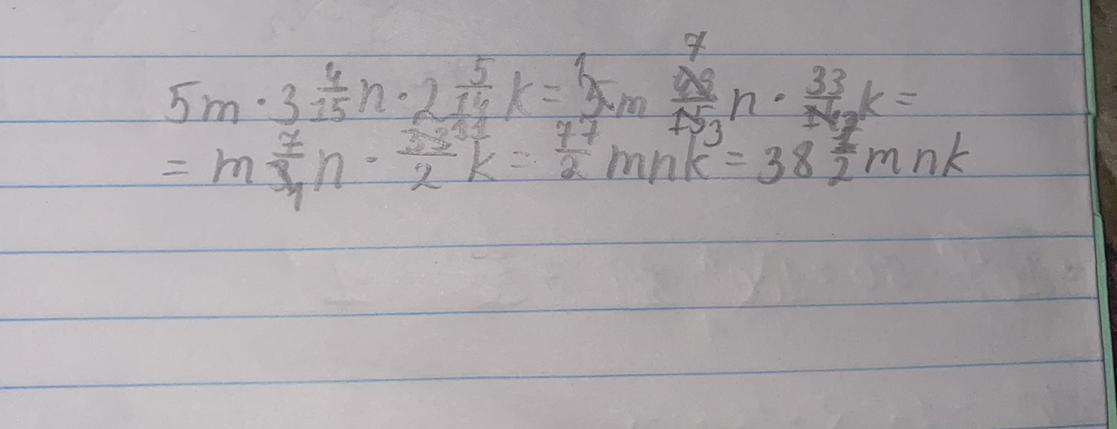 5m · 3 4/15 n · 2 5/14 k = 5 1 m 49/15 7 3 n · 33/14 2 k =
= m 7/3 1 n · 33/2 11 k = 77/2 mnk = 38 1/2 mnk